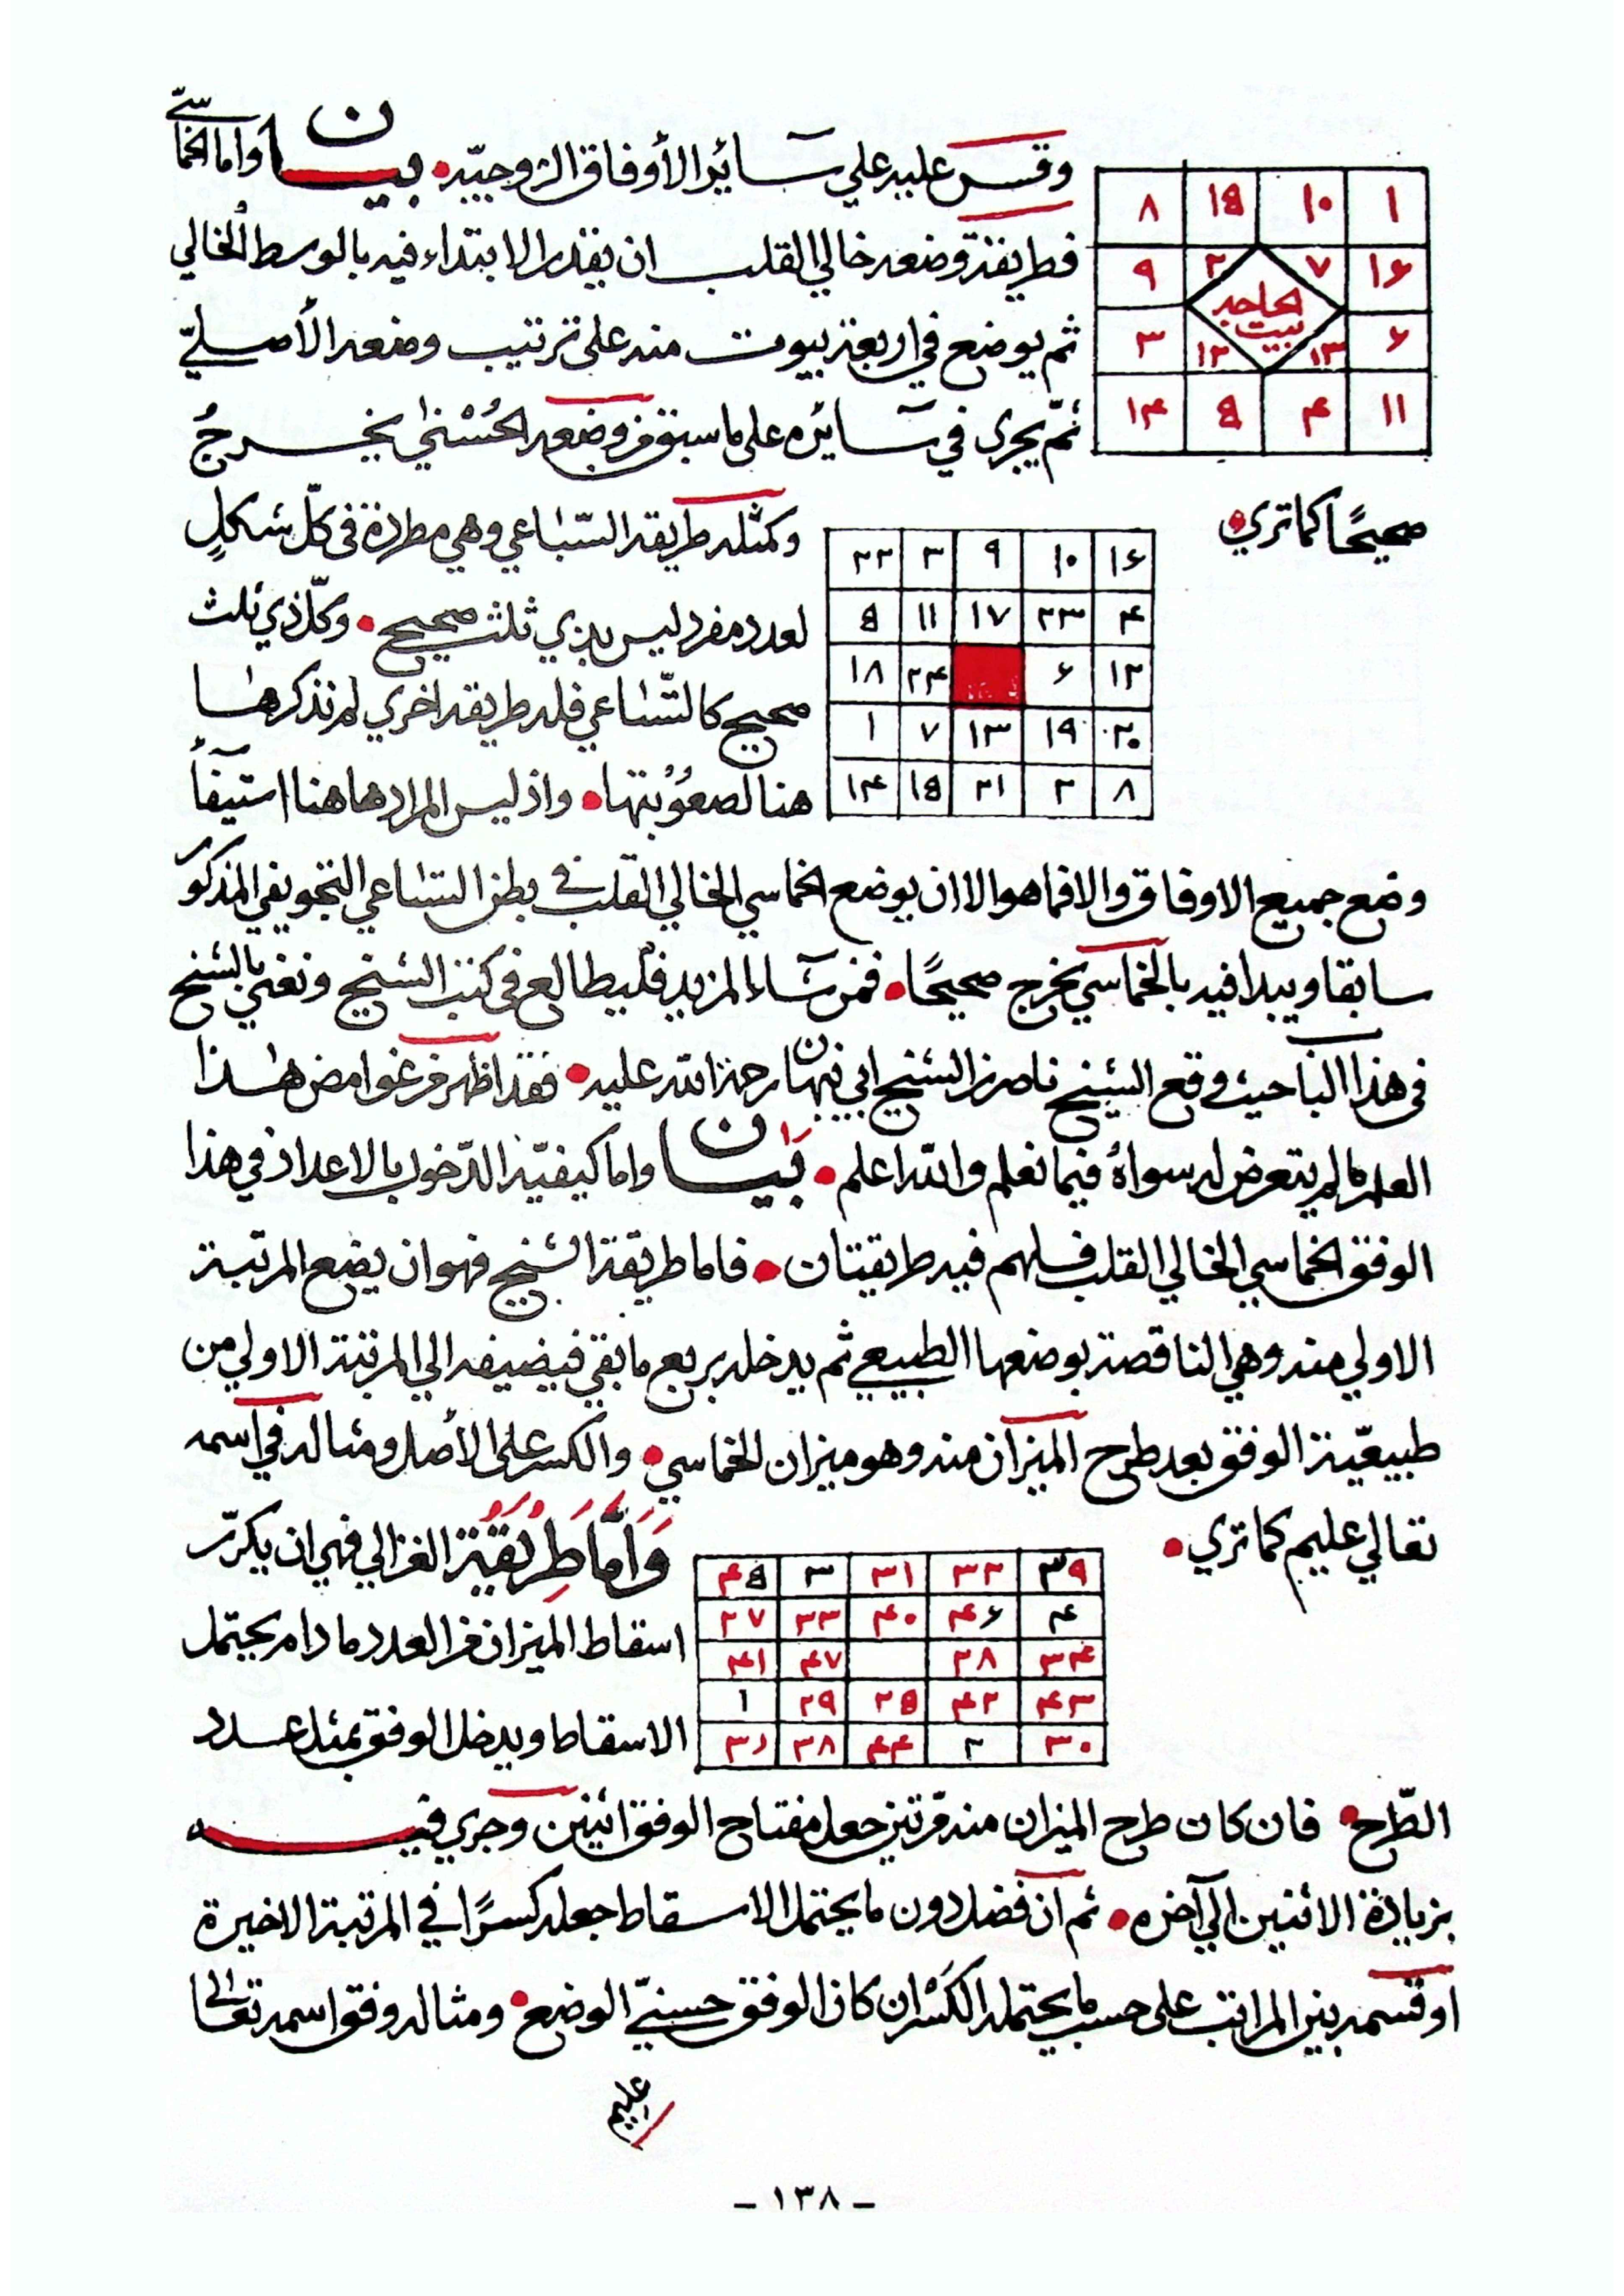 وقس عليه علي سائر الأوفاق الزوجيّه • بيان وأما الخماسيّ
١ ١٠ ١٥ ٨
فطريقة وضعه خالي القلب ان يقدر الابتداء فيه بالوسط الخالي
١٦ ٧ ٢ ٩
بيت الحاجه
ثم يوضع في اربعة بيوت منه على ترتيب وضعه الأصليّ
٦ ١٣ ١٢ ٣
ثمّ يجري في سائره على ما سبق من وضعه الحسني يخرج
١١ ٤ ٥ ١٤
صحيحًا كما تري •
١٦ ١٠ ٩ ٣ ٢٢
٤ ٢٣ ١٧ ١١ ٥
١٢ ٦ ٢٤ ١٨
٢٠ ١٩ ١٣ ٧ ١
٨ ٢ ٢١ ١٥ ١٤
وكمثله طريقة السّباعي وهي مطردة في كلّ شكلٍ
لعدد مفرد ليس بذي ثلث صحيح • وكلّ ذي ثلث
صحيح كالتّساعي فله طريقه اخري لم نذكرها
هنا لصعوبتها • واذ ليس المراد هاهنا استيفآء
وضع جميع الاوفاق والا فما هو الا ان يوضع الخماسي الخالي القلب في بطن التساعي التجويفي المذكور
سابقا ويبدا فيه بالخماسي يخرج صحيحًا • فمن شاء المزيد فليطالع في كتب الشيخ ونعني بالشيخ
في هذا الباب حيث وقع الشيخ ناصر بن الشيخ ابي نبهان رحمة الله عليه • فقد اظهر من غوامض هذا
العلم ما لم يتعرض له سواه فيما نعلم والله اعلم • بيان واما كيفيّة الدّخول بالاعداد في هذا
الوفق الخماسي الخالي القلب فلهم فيه طريقتان • فاما طريقة الشيخ فهو ان يضع المرتبة
الاولي منه وهي الناقصة بوضعها الطبيعي ثم يدخله بربع ما بقي فيضيفه الي المرتبة الاولي من
طبيعيّة الوفق بعد طرح الميزان منه وهو ميزان الخماسي • والكسر على الأصل ومثاله في اسمه
تعالي عليم كما تري •
٣٩ ٣٢ ٣١ ٣ ٤٥
٤ ٤٦ ٤٠ ٣٣ ٢٧
٣٤ ٢٨ ٤٧ ٤١
٤٣ ٤٢ ٢٥ ٢٩ ١
٣٠ ٢ ٤٤ ٣٨
وَأمَّا طَرِيقَة الغزالي فهي ان يكرّر
اسقاط الميزان من العدد ما دام يحتمل
الاسقاط ويدخل الوفق بمثل عدد
الطّرح • فان كان طرح الميزان منه مرّتين جعل مفتاح الوفق اثنين وجري فيه
بزيادة الاثنين الي آخره • ثم ان فضل دون ما يحتمل الاسقاط جعله كسرًا في المرتبة الاخيرة
او قسمه بين المراتب على حسب ما يحتمله الكسر ان كان الوفق حسنيّ الوضع • ومثاله وفق اسمه تعالى
عليم
- ١٣٨ -